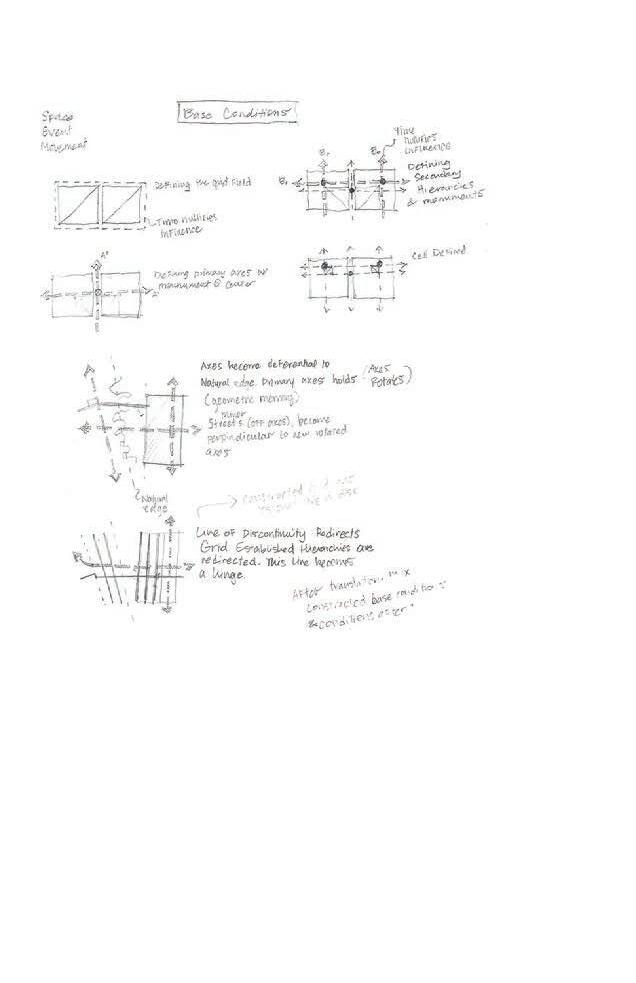 Base Conditions
Space
Event
Movement
Defining the grid field
Influence
A'
Defining primary axes w/
monument @ center
Time
Influence
Defining
Secondary
Hierarchies
& monuments
Cell Defined
Axes become deferential to
Natural edge. Primary axes holds (Axis
Rotates)
(geometric memory)
minor
Streets (off axes), become
perpindicular to new rotated
axes
Natural
edge
Constructed
Line of Discontinuity Redirects
Grid Established Hierarchies are
redirected. This line becomes
a hinge.
After translation, mix
base conditions
& conditions after